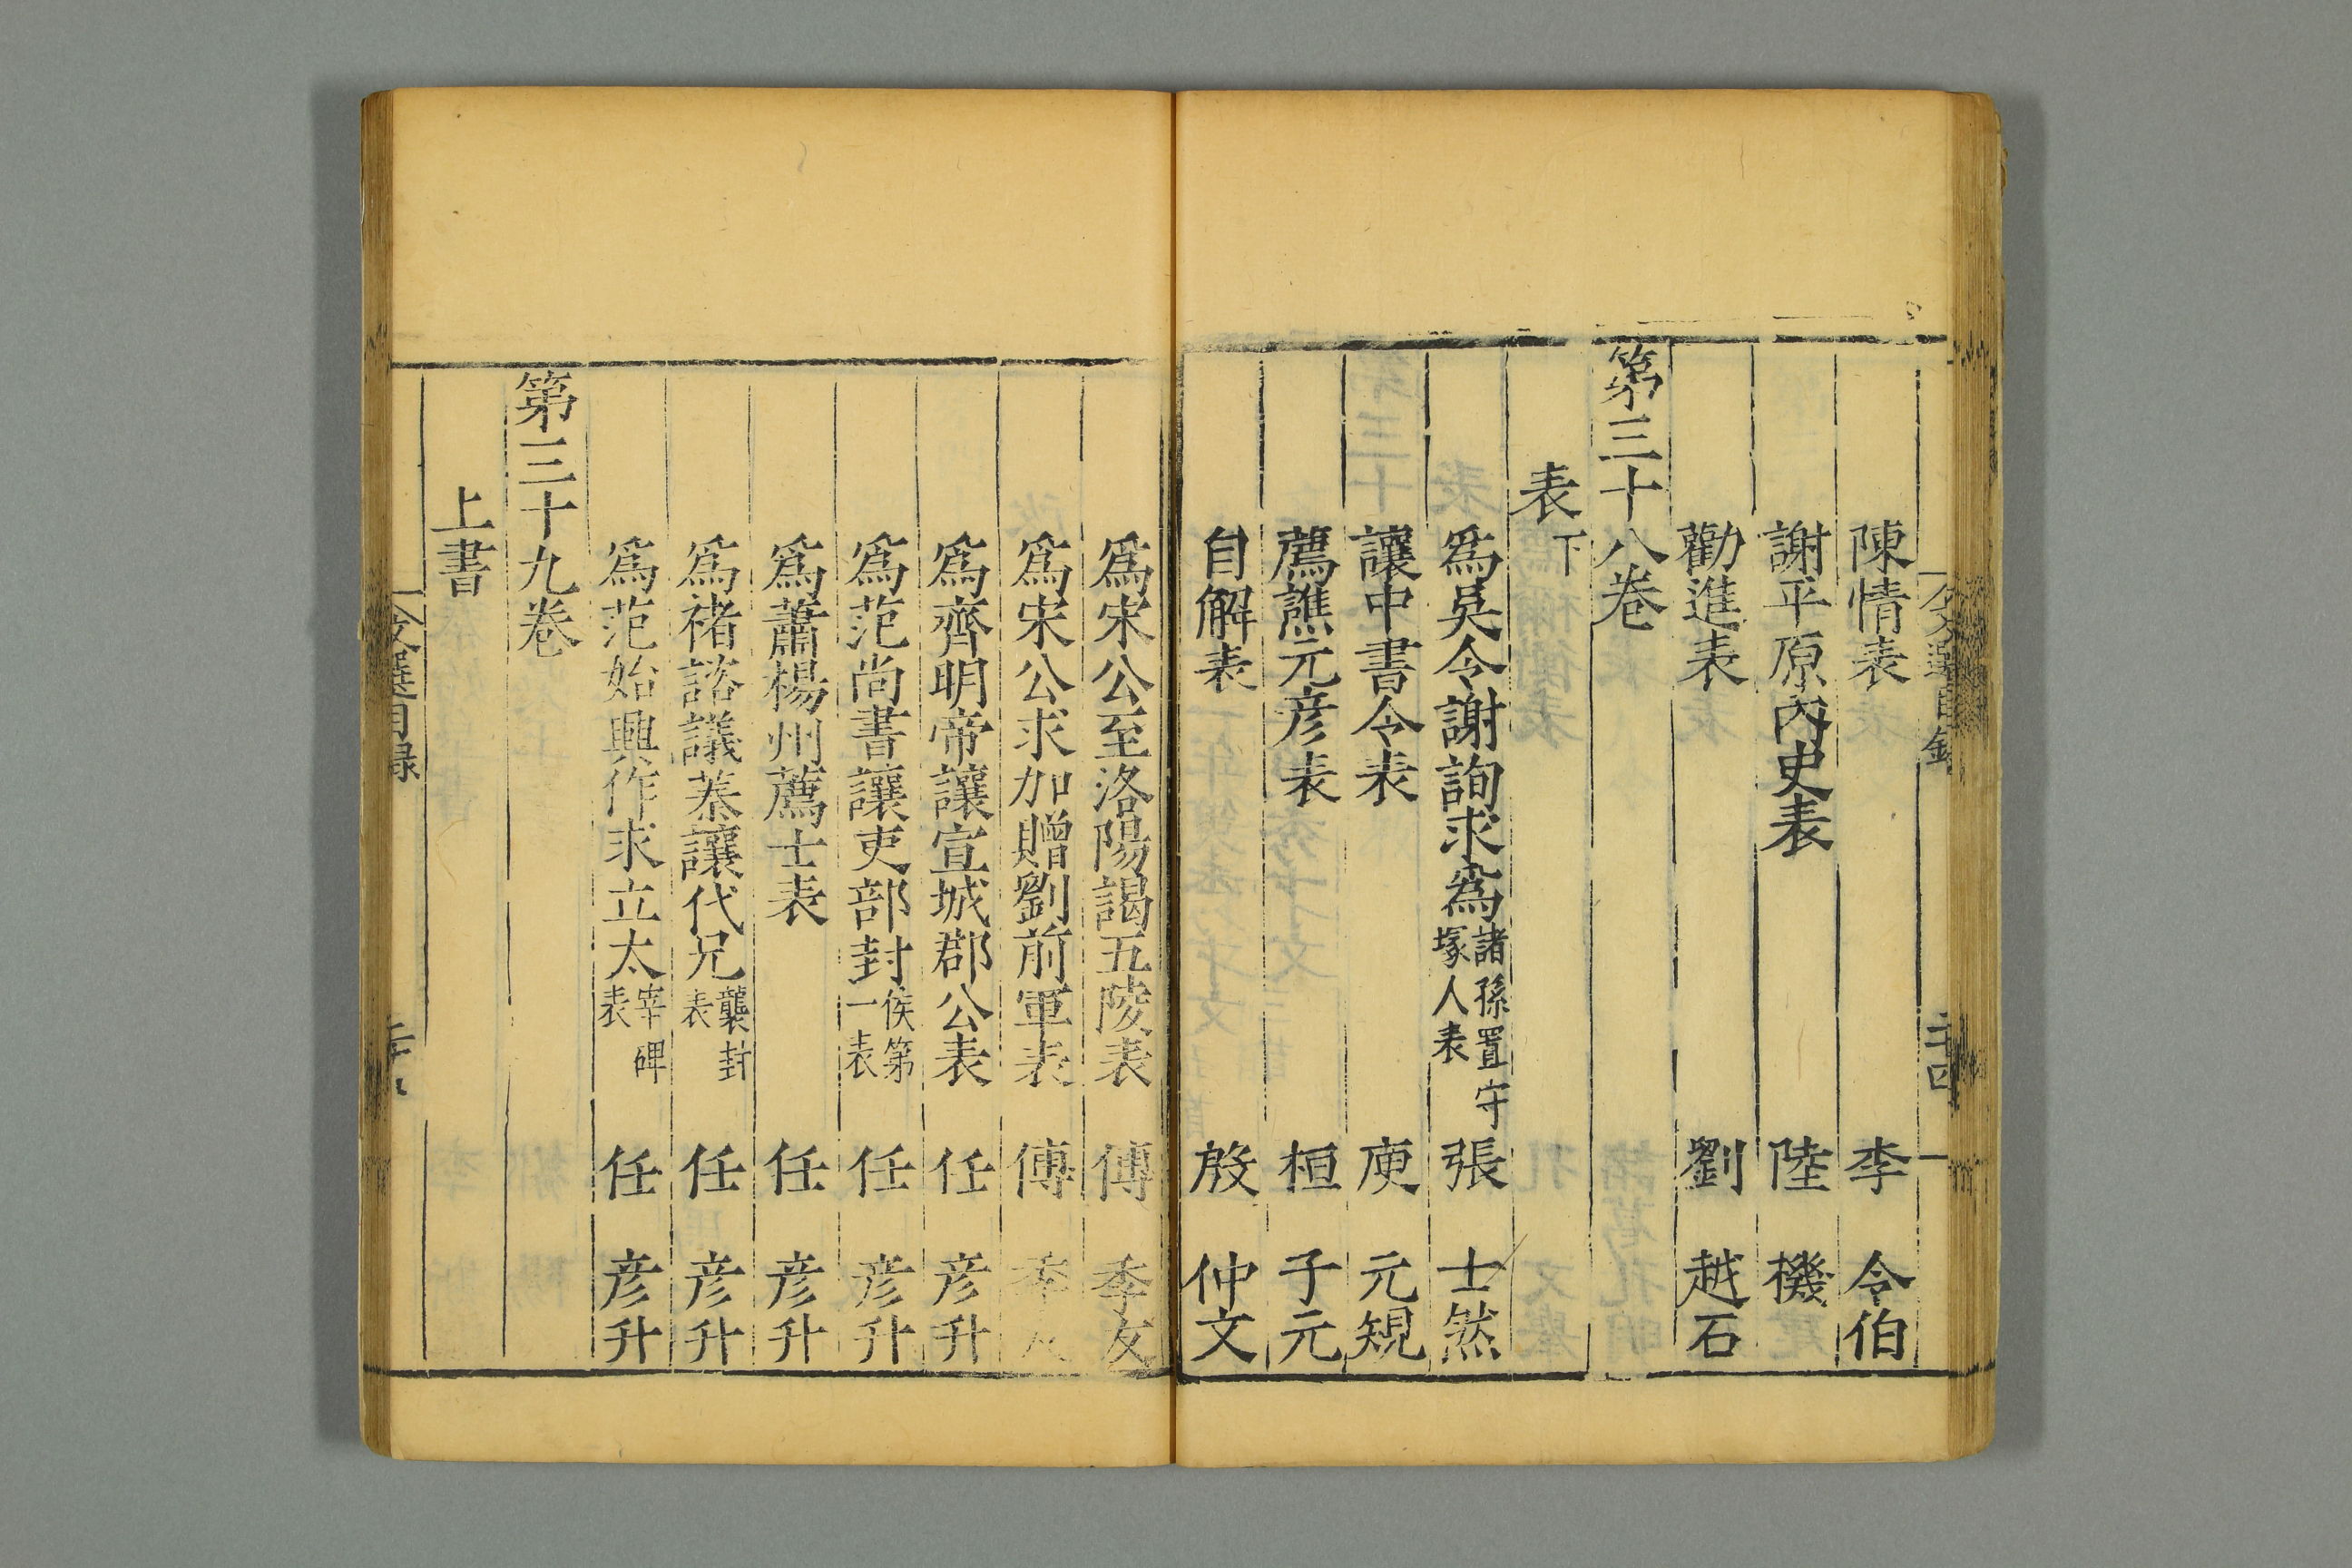 陳情表 李 令伯
謝平原內史表 陸 機
勸進表 劉 越石
第三十八卷
表下
為吳令謝詢求為諸孫置守塚人表 張 士然
讓中書令表 庾 元規
薦譙元彥表 桓 子元
自解表 殷 仲文
為宋公至洛陽謁五陵表 傅 季友
為宋公求加贈劉前軍表 傅 季友
為齊明帝讓宣城郡公表 任 彥升
為范尚書讓吏部封侯第一表 任 彥升
為蕭楊州薦士表 任 彥升
為褚諮議蓁讓代兄襲封表 任 彥升
為范始興作求立太宰碑表 任 彥升
第三十九卷
上書
文選目録